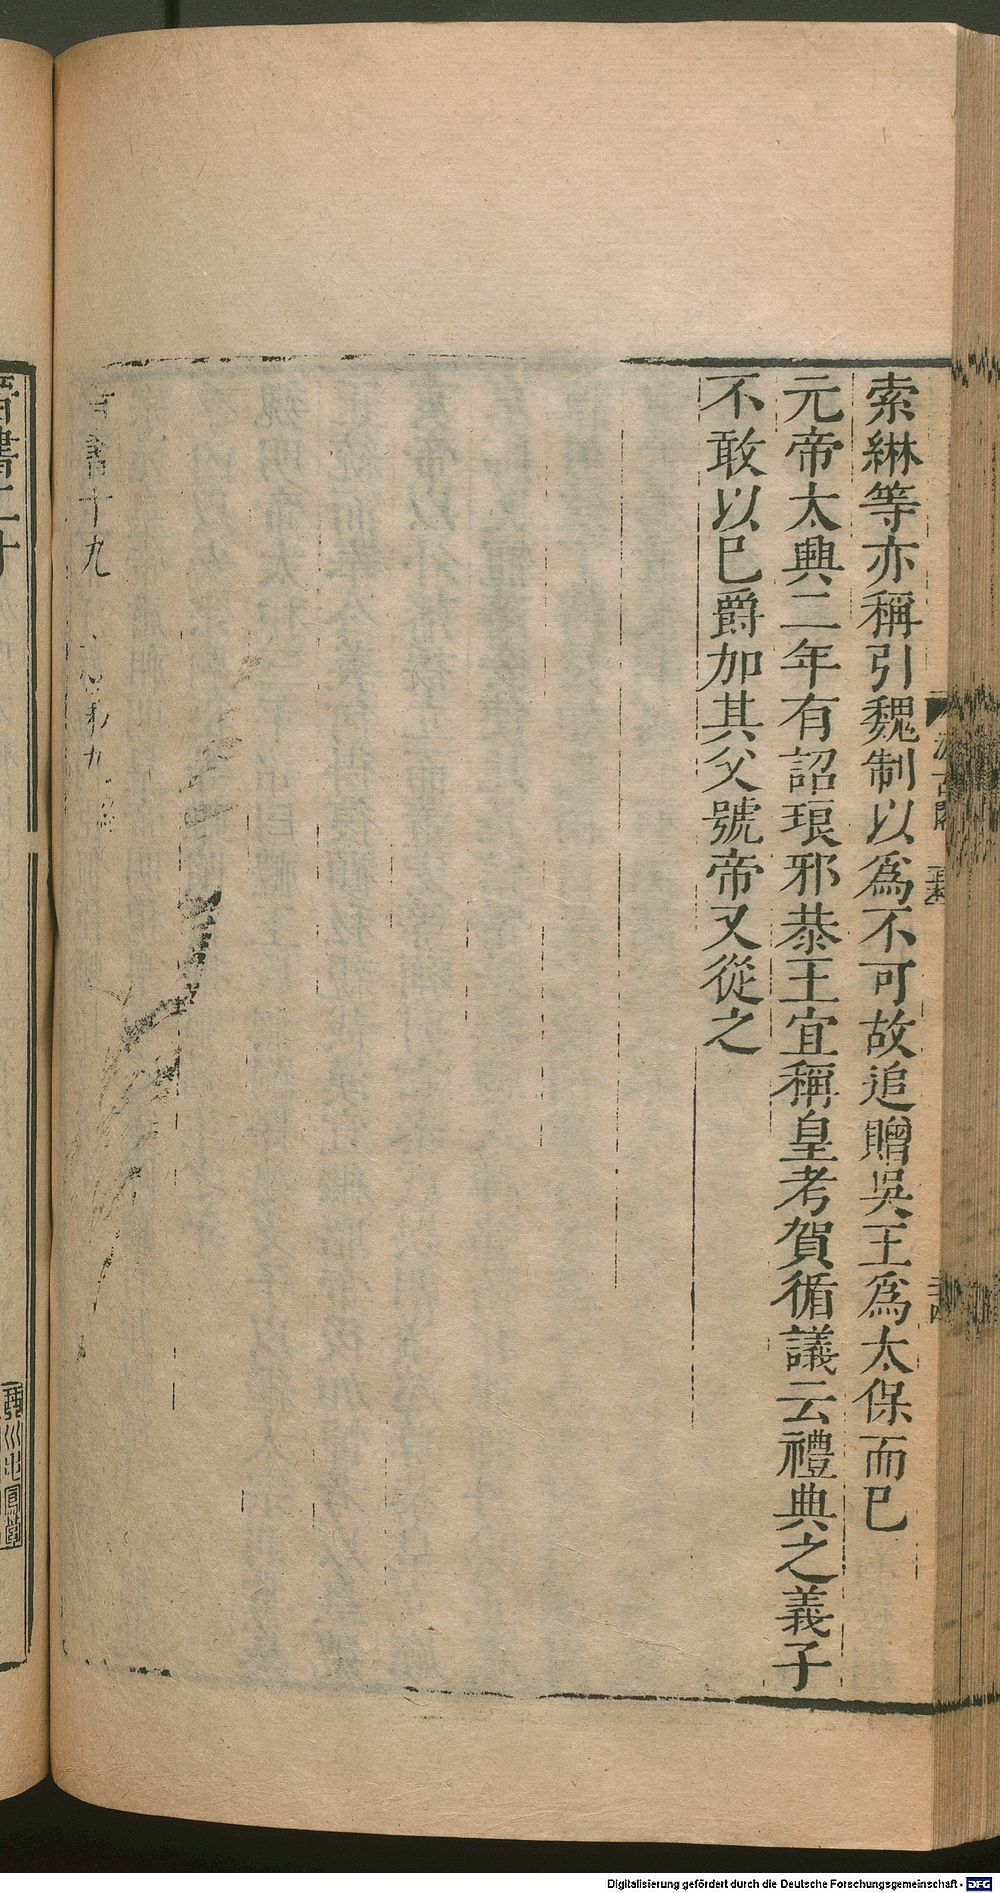 索綝等亦稱引魏制以爲不可故追贈吳王爲太保而已
元帝太興二年有詔琅邪恭王宜稱皇考賀循議云禮典之義子
不敢以已爵加其父號帝又從之
晉書十九 志第九
晉書二十
Digitalisierung gefördert durch die Deutsche Forschungsgemeinschaft - DFG